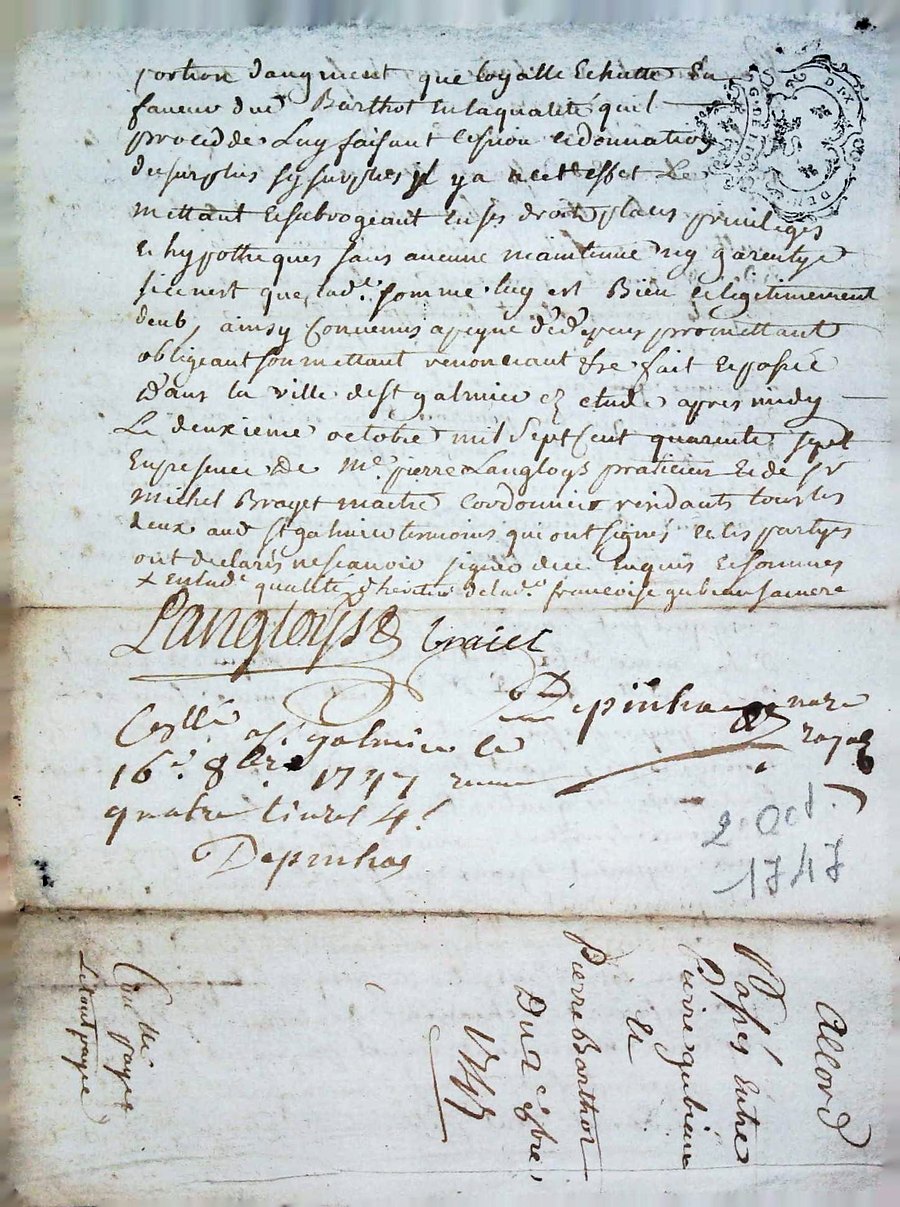 portion daugment que loyalle Echutte En
faveur dud Barthot En laquallité quil
procedde Luy faisant cession et donnation
du surplus sy surplus yl y a a cest effet Le
mettant Et subrogeant En ses droits places privileges
Et hypotheques sans aucune maintenue ny garentye
sice nest que lade somme luy est Bien et legitimement
deub, ainsy Convenus a peyne
promettant
obligeant soumettant renonceant Ete fait Et passé
Dans la ville de St galmier ez etude apres midy
Le deuxieme octobre mil Sept Cent quarente sept
En presence de Me pierre Langloys praticien Et de sr
michel Brayet maitre Cordonnier residants tous les
deux aud St galmier temoins qui ont signes Et les partyes
ont declarés ne scavoir signer de ce Enquis Et sommes
x En lade qualité d'heritier de lade francoise gubian sa mere
Langloys Braiet
Depinhac nore
royal
Cellé a St galmier le
16e 8bre 1747 receu
quatre livres 4 s
Depinhac
2 Oct.
1747
Accord
Passé Entre
Pierre gubian
Et
Pierre Barthot
Du 2 8bre,
1747
Le tout payé